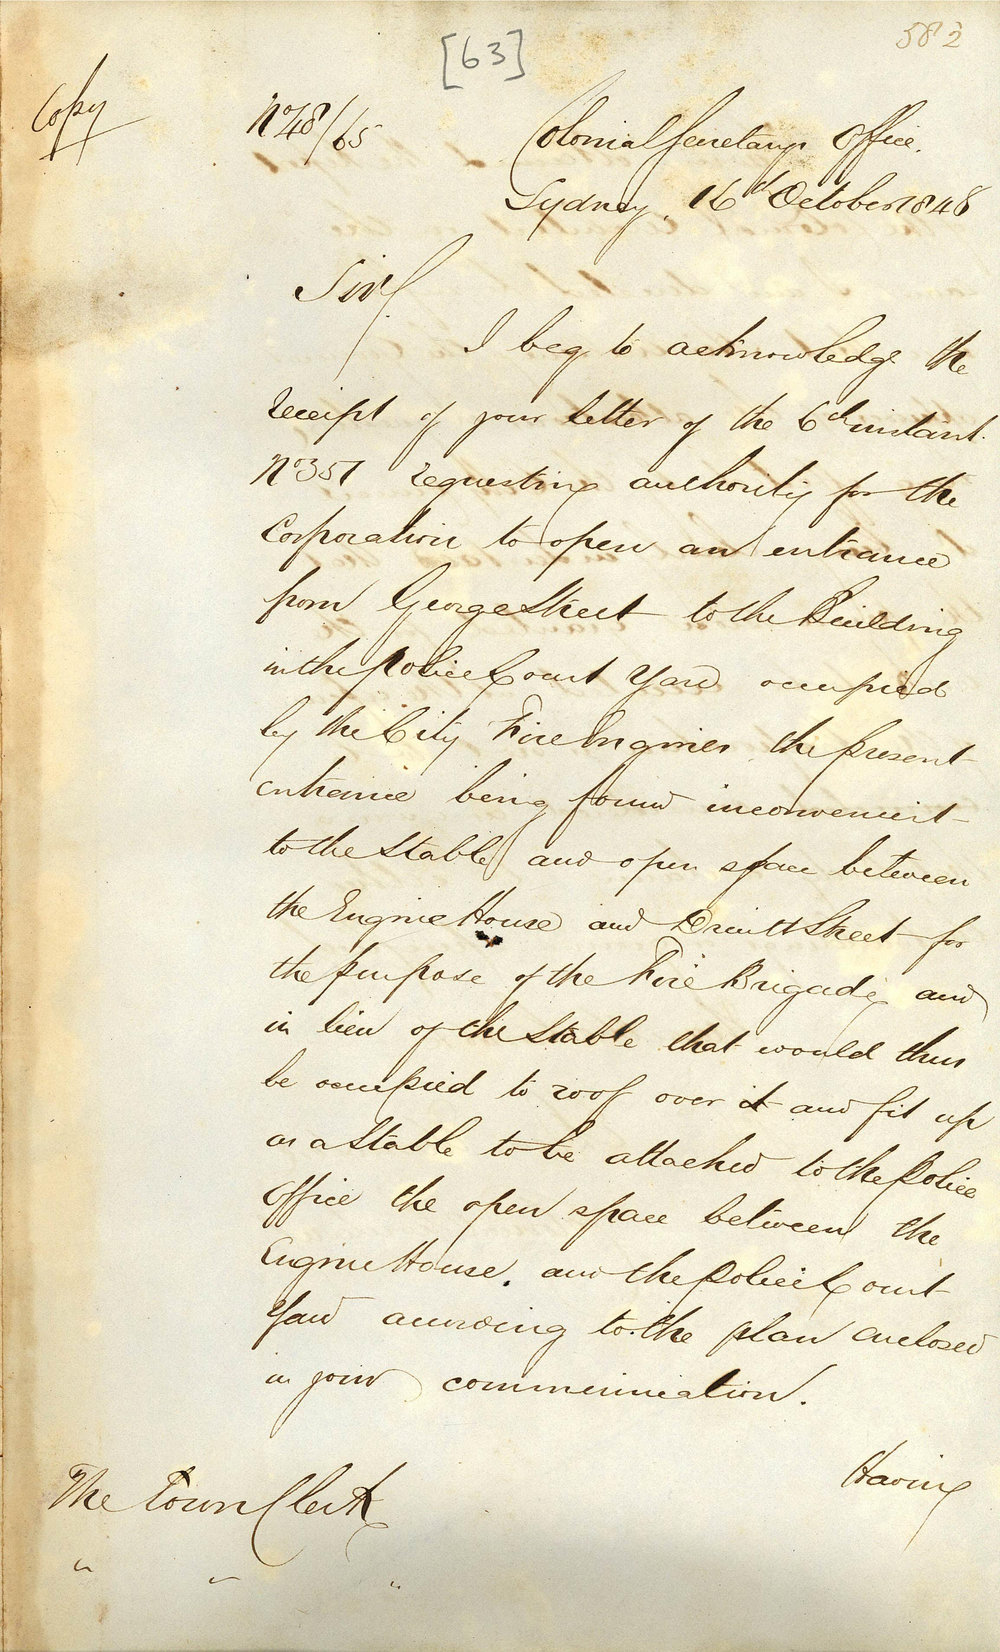 [63]
582
Copy
No 48/65
Colonial Secretarys Office.
Sydney, 16th October 1848
Sir,
I beg to acknowledge the
receipt of your letter of the 6th instant.
No 357 requesting authority for the
Corporation to open an entrance
from George Street to the Building
in the Police Court Yard occupied
by the City Fire Engines, the present
entrance being found inconvenient
to the Stable and open space between
the Engine House and Druitt Street for
the purpose of the Fire Brigade, and
in lieu of the Stable that would thus
be occupied to roof over it and fit up
as a Stable to be attached to the Police
Office the open space between the
Engine House. and the Police Court
Yard according to the plan enclosed
in your communication.
Having
The Town Clerk
" " "